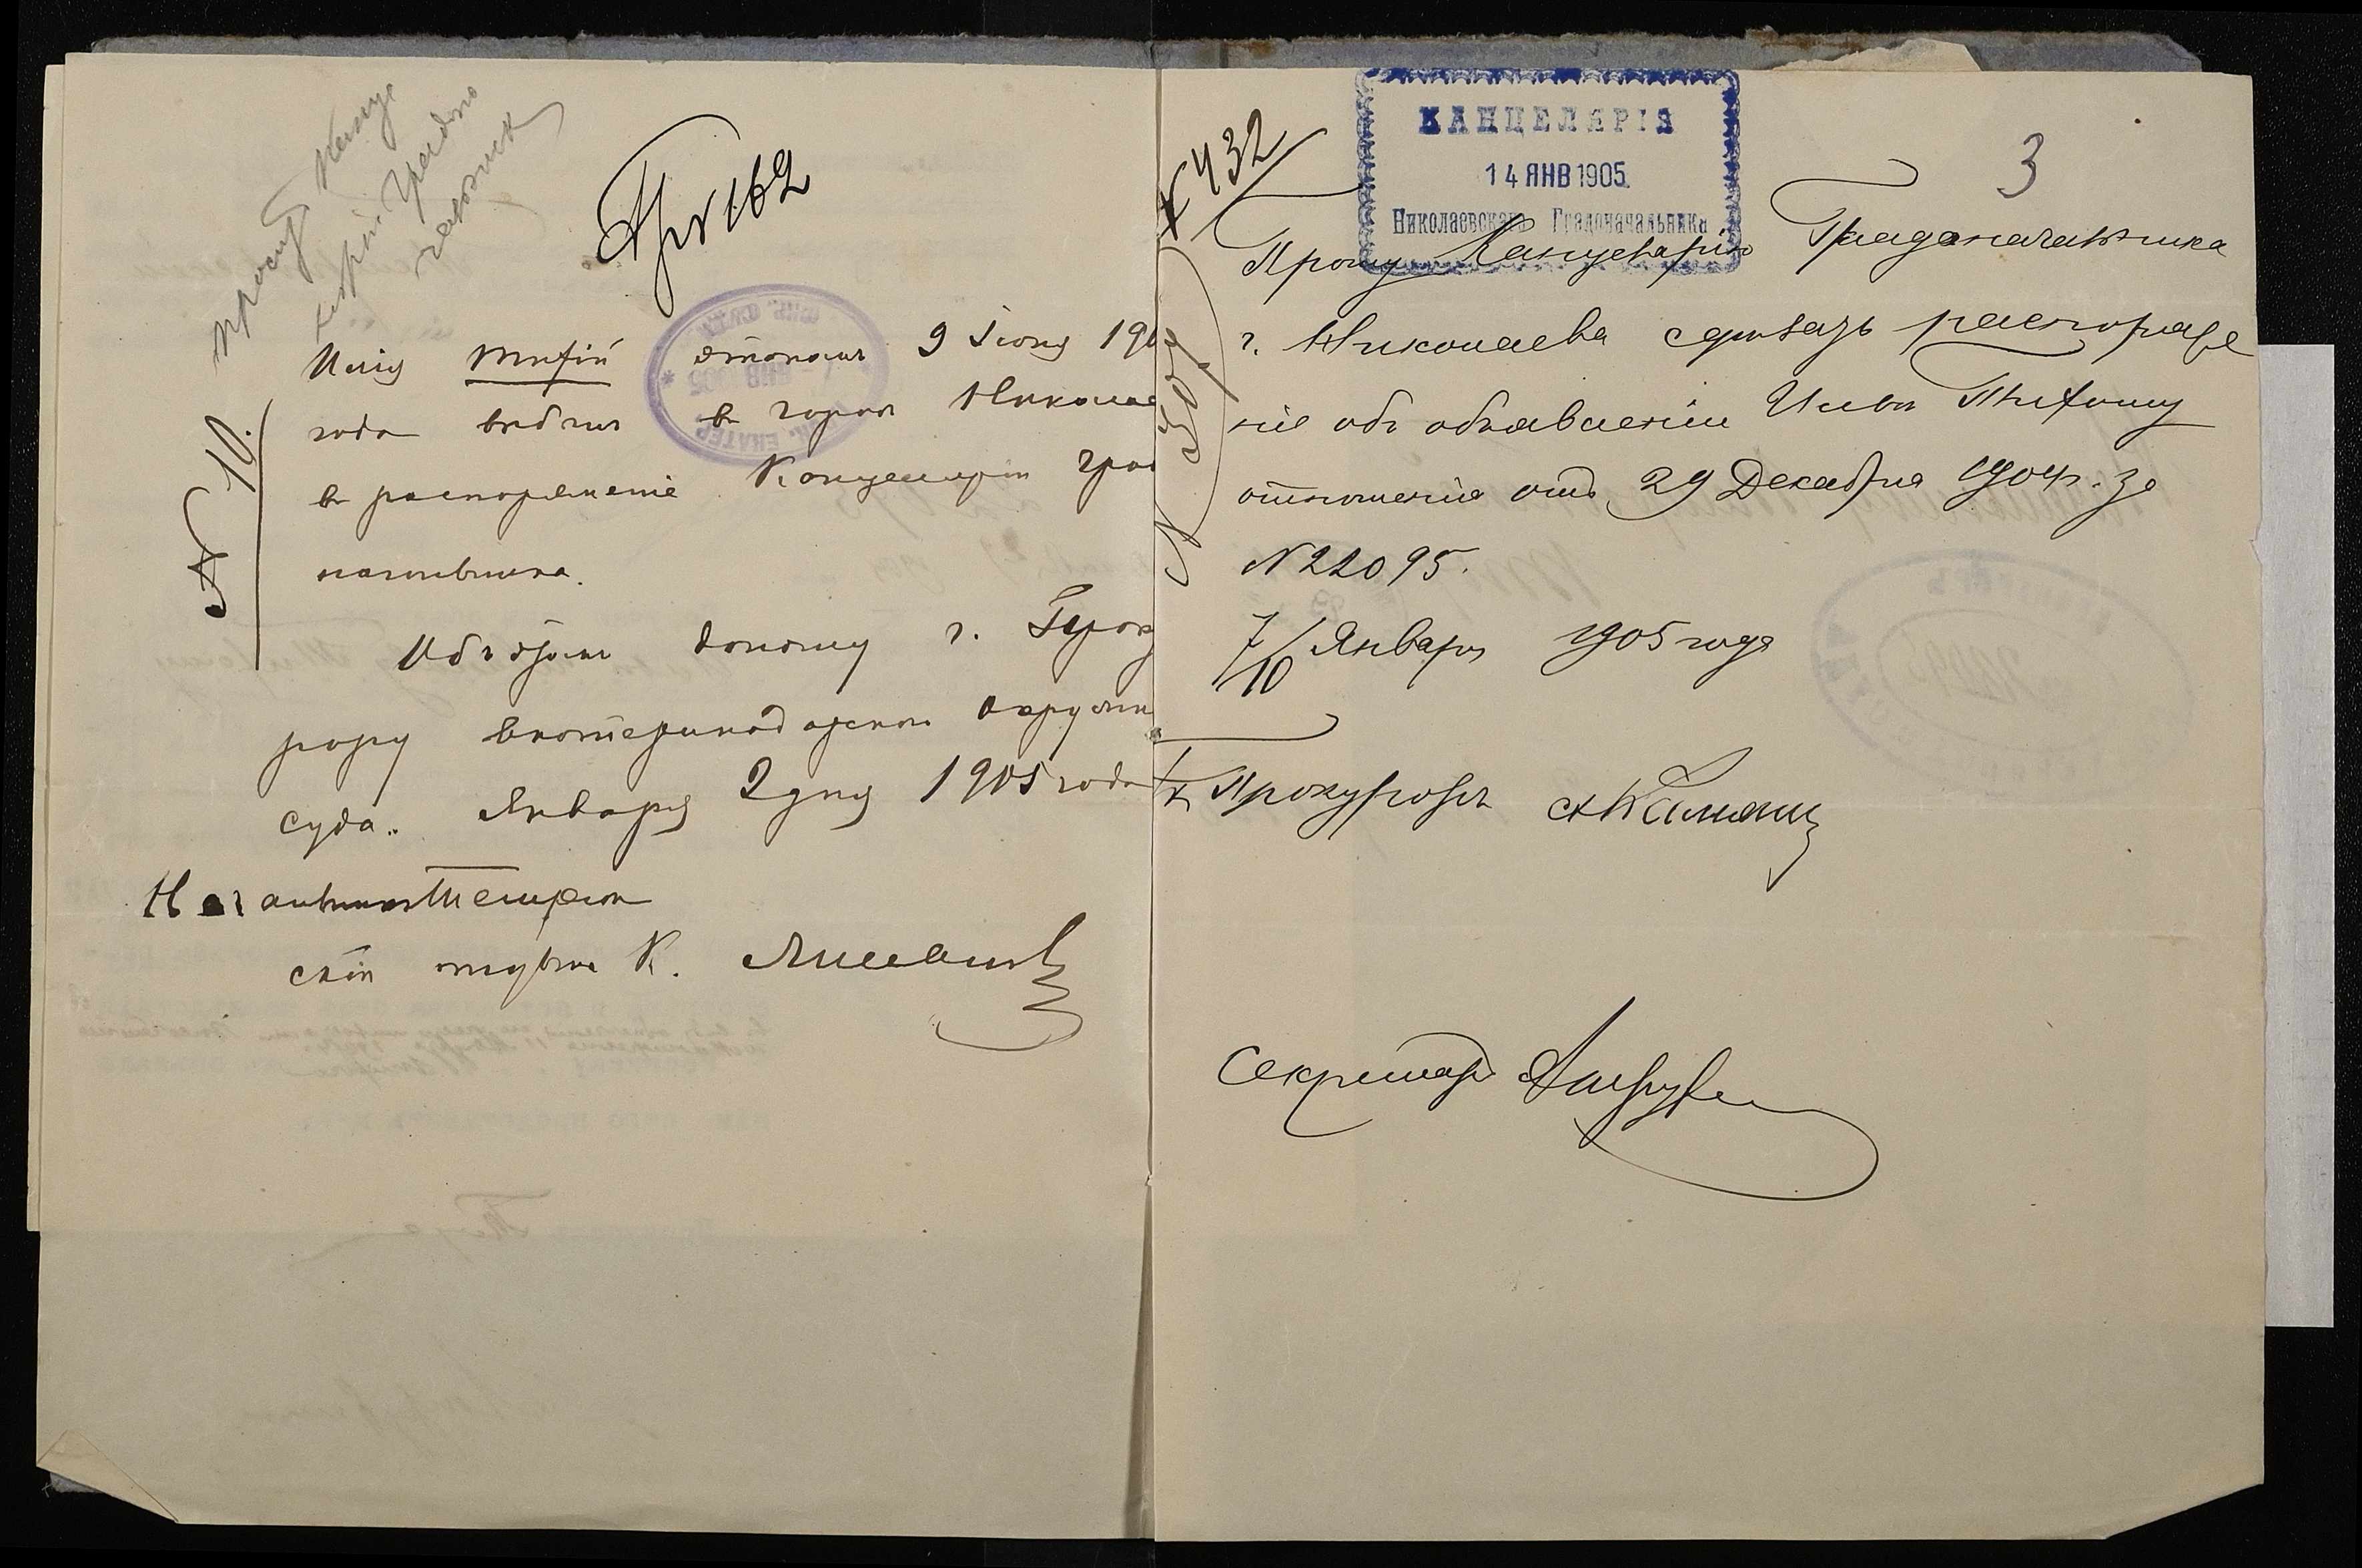 просит Канце
лярiю Градо
начальник
Пр № 162
№ 10.
Илiя Тифiй этапом 9 Iюня 190
года выбыл в город Никола
в распоряженiе Канцелярiи град
начальника.
Об этом доношу г. Проку
рору Екатеринодарскаго окружн
суда. Января 2 дня 1905 года
Начальник Темрюк
ской тюрьмы К.
КАНЦЕЛЯРIЯ
14 ЯНВ 1905
Николаевскаго Градоначальника
3
№ 432
Прошу Канцелярiю Градоначальника
г. Николаева сделать распоряже
нiе объ объявленiи Ильѣ Тифому
отношенiя отъ 29 Декабря 1904 г. за
№ 22095.
7/10 Января 1905 года
Прокуроръ
Секретарь